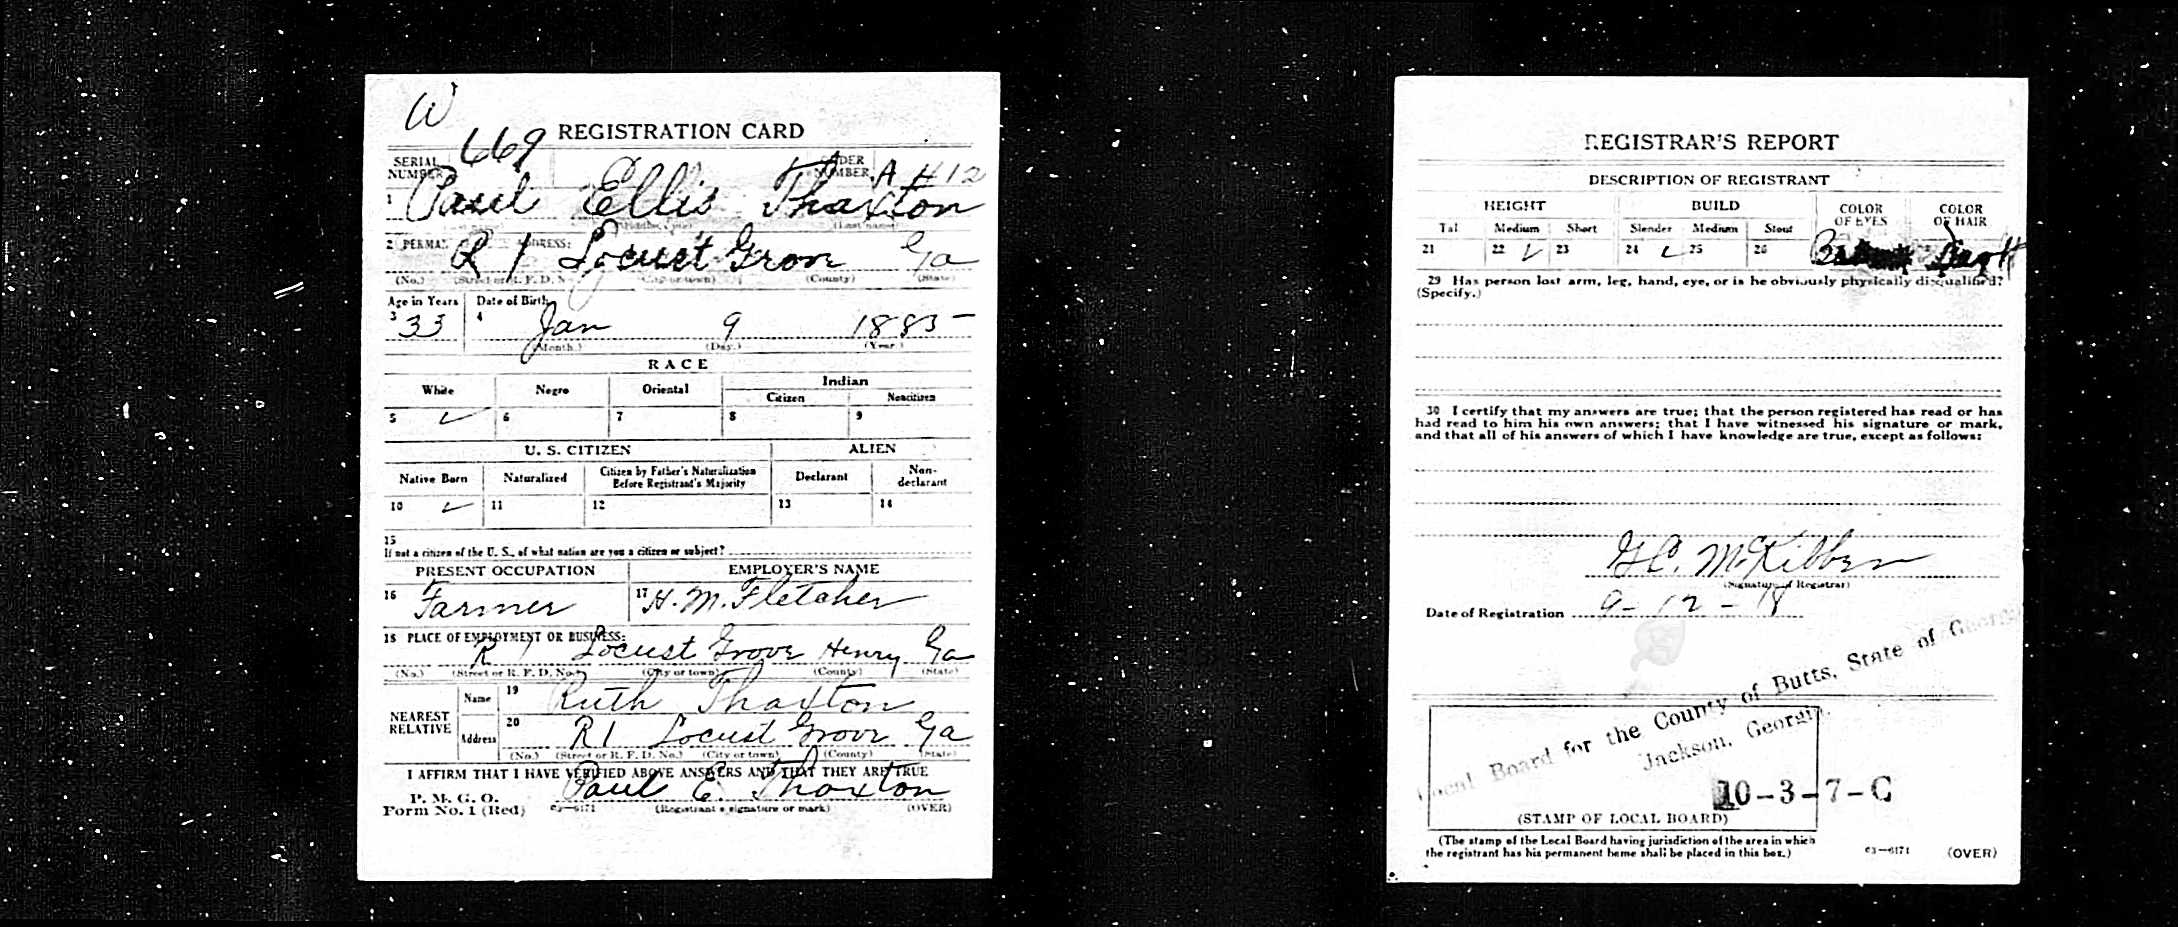 W
669 REGISTRATION CARD
SERIAL NUMBER ORDER NUMBER A 412
1 Paul Ellis Thaxton
(Last name)
2 PERMANENT ADDRESS: R 1 Locust Grove Ga
(No.) (Street or R. F. D. No.) (City or town) (County) (State)
Age in Years Date of Birth
3 33 4 Jan 9 1885
(Month.) (Day.) (Year.)
RACE
White Negro Oriental Indian
Citizen Noncitizen
5 ✓ 6 7 8 9
U. S. CITIZEN ALIEN
Native Born Naturalized Citizen by Father's Naturalization Before Registrant's Majority Declarant Non-declarant
10 ✓ 11 12 13 14
15
If not a citizen of the U. S., of what nation are you a citizen or subject?
PRESENT OCCUPATION EMPLOYER'S NAME
16 Farmer 17 H. M. Fletcher
18 PLACE OF EMPLOYMENT OR BUSINESS:
R 1 Locust Grove Henry Ga
(No.) (Street or R. F. D. No.) (City or town) (County) (State)
NEAREST RELATIVE
Name 19 Ruth Thaxton
Address 20 R1 Locust Grove Ga
(No.) (Street or R. F. D. No.) (City or town) (County) (State)
I AFFIRM THAT I HAVE VERIFIED ABOVE ANSWERS AND THAT THEY ARE TRUE
P. M. G. O.
Form No. 1 (Red) 03—6171 Paul E. Thaxton
(Registrant's signature or mark) (OVER)
REGISTRAR'S REPORT
DESCRIPTION OF REGISTRANT
HEIGHT BUILD COLOR OF EYES COLOR OF HAIR
Tall Medium Short Slender Medium Stout
21 22 ✓ 23 24 ✓ 25 26
29 Has person lost arm, leg, hand, eye, or is he obviously physically disqualified?
(Specify.)
30 I certify that my answers are true; that the person registered has read or has
had read to him his own answers; that I have witnessed his signature or mark,
and that all of his answers of which I have knowledge are true, except as follows:
G.C. McKibben
(Signature of Registrar)
Date of Registration 9-12-18
Local Board for the County of Butts, State of Georgia
Jackson, Georgia.
10-3-7-C
(STAMP OF LOCAL BOARD)
(The stamp of the Local Board having jurisdiction of the area in which
the registrant has his permanent home shall be placed in this box.)
03—6171 (OVER)